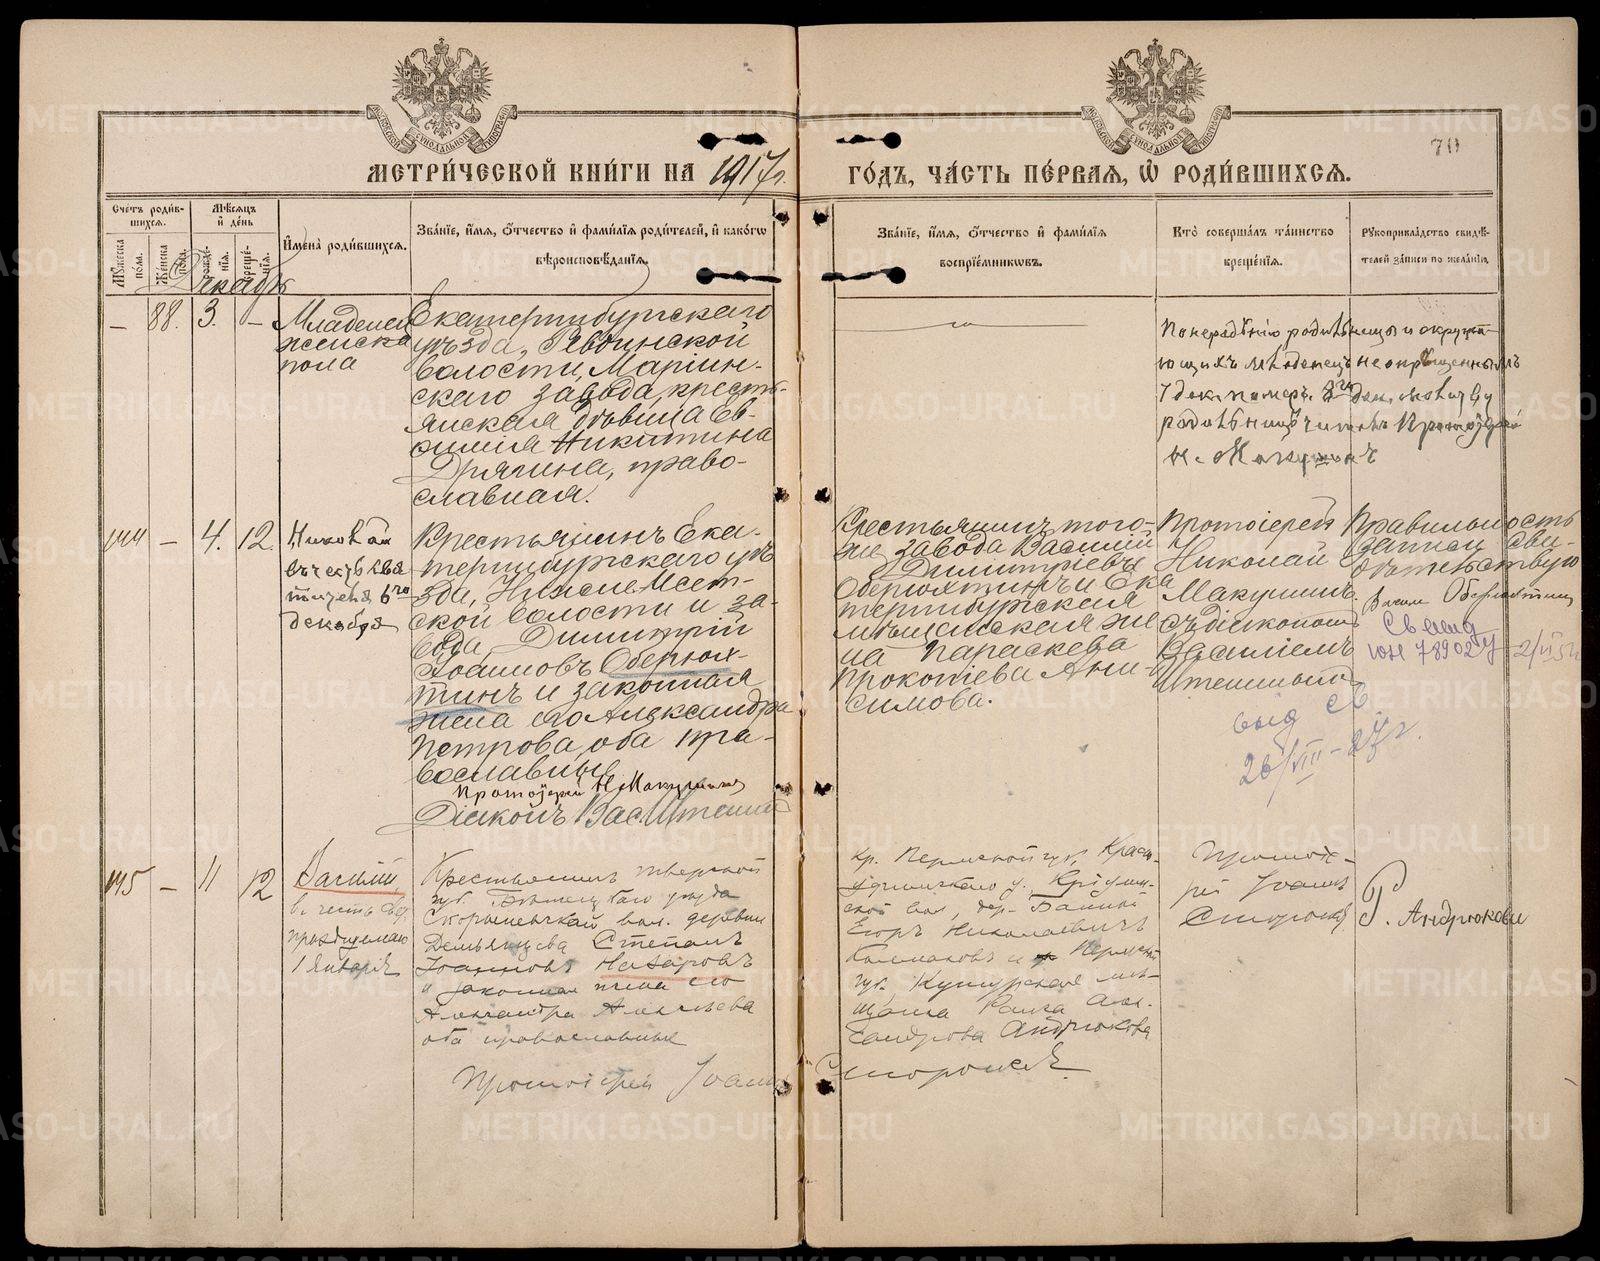 МЕТРИ́ЧЕСКОЙ КНИ́ГИ НА 1917 г.
ГО́ДЪ, ЧА́СТЬ ПЕ́РВАЯ, Ѽ РОДИ́ВШИХСЯ.
70
Сче́тъ роди́в-
шихся.
Мѣ́сяцъ
и҆ де́нь
Му́жеска
пола.
Же́нска
пола.
рожде́-
нїя.
креще́-
нїя.
И҆мена̀ роди́вшихся.
Зва́нїе, и҆́мя, ѻ҆́тчество и҆ фами́лїя роди́телей, и҆ како́гѡ
вѣроисповѣ́данїя.
Зва́нїе, и҆́мя, ѻ҆́тчество и҆ фами́лїя
воспрїе́мниковъ.
Кто̀ соверша́лъ та́инство
креще́нїя.
Рꙋкоприкла́дство свидѣ́-
телей за́писи по жела́нїю.
Декабрь
— 88. 3. —
Младенец
женска
пола
Екатеринбургскаго
уѣзда, Ревдинской
волости, Маріин-
скаго завода, кресть-
янская дѣвица Ев-
фимія Никитина
Дрягина, право-
славная.
По нерадѣнію родильницы и окружа-
ющихъ младенецъ не окрещеннымъ
7 дек. померъ.
родильницѣ читалъ Протоіерей
Н. Макушинъ
144 — 4. 12.
Николай
въ честь Свя
тителя 6го
декабря
Крестьянинъ Ека-
теринбургскаго уѣ-
зда, Нижне Исет-
ской волости и за-
вода, Димитрій
Іоанновъ Оберюх-
тинъ и законная
жена его Александра
Петрова, оба пра-
вославные
Протоіерей Н Макушинъ
Діаконъ Вас. Штенниковъ
Крестьянинъ того-
же завода Василій
Димитріевъ
Оберюхтинъ и Ека
теринбургская
мѣщанская же
на Параскева
Прокопіева Ани-
симова.
Протоіерей
Николай
Макушинъ
съ діакономъ
Василіемъ
Правильность
записи сви-
дѣтельствую
Васил Оберюхтинъ
Св выд
ЮН 789024 2/VI 51
выд св.
26/VIII-27 г.
145 — 11 12
Василій
въ честь
празднуемаго
1 Января
Крестьянинъ Тверской
губ. Бѣжецкаго уѣзда
вол. деревни
Степанъ
Іоанновъ Назаровъ
и законная жена его
Александра Алексѣева
оба православные
Кр. Пермской губ., Красн-
уфимскаго у.,
вол, дер.
Егоръ Николаевичъ
и Пермской
губ. Кунгурская мѣ-
щанка Раиса Алек-
сандрова Андрюкова
Протоіе-
рей Іоаннъ
Сторожевъ
Р. Андрюкова
Протоіерей Іоаннъ Сторожевъ
METRIKI.GASO-URAL.RU